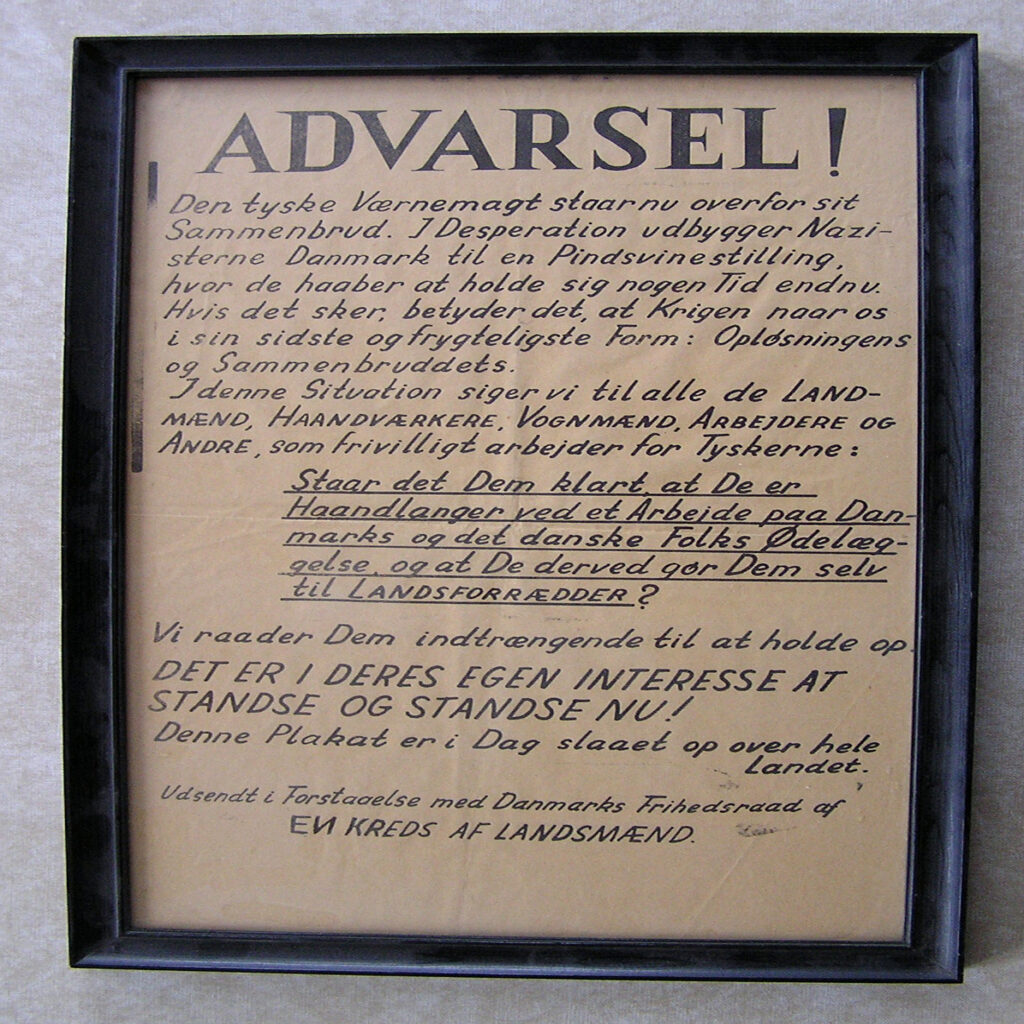 ADVARSEL!
Den tyske Værnemagt staar nu overfor sit
Sammenbrud. I Desperation udbygger Nazi-
sterne Danmark til en Pindsvinestilling,
hvor de haaber at holde sig nogen Tid endnu.
Hvis det sker, betyder det, at Krigen naar os
i sin sidste og frygteligste Form: Opløsningens
og Sammenbruddets.
I denne Situation siger vi til alle de LAND-
MÆND, HAANDVÆRKERE, VOGNMÆND, ARBEJDERE OG
ANDRE, som frivilligt arbejder for Tyskerne:
Staar det Dem klart, at De er
Haandlanger ved et Arbejde paa Dan-
marks og det danske Folks Ødelæg-
gelse, og at De derved gør Dem selv
til LANDSFORRÆDDER?
Vi raader Dem indtrængende til at holde op.
DET ER I DERES EGEN INTERESSE AT
STANDSE OG STANDSE NU!
Denne Plakat er i Dag slaaet op over hele
Landet.
Udsendt i Forstaaelse med Danmarks Frihedsraad af
EN KREDS AF LANDSMÆND.